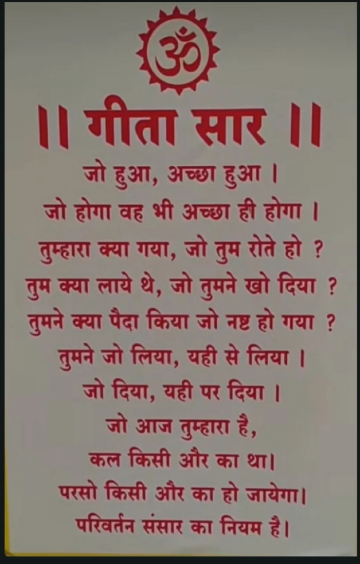 ॐ
|| गीता सार ||
जो हुआ, अच्छा हुआ ।
जो होगा वह भी अच्छा ही होगा ।
तुम्हारा क्या गया, जो तुम रोते हो ?
तुम क्या लाये थे, जो तुमने खो दिया ?
तुमने क्या पैदा किया जो नष्ट हो गया ?
तुमने जो लिया, यही से लिया ।
जो दिया, यही पर दिया ।
जो आज तुम्हारा है,
कल किसी और का था।
परसो किसी और का हो जायेगा।
परिवर्तन संसार का नियम है।